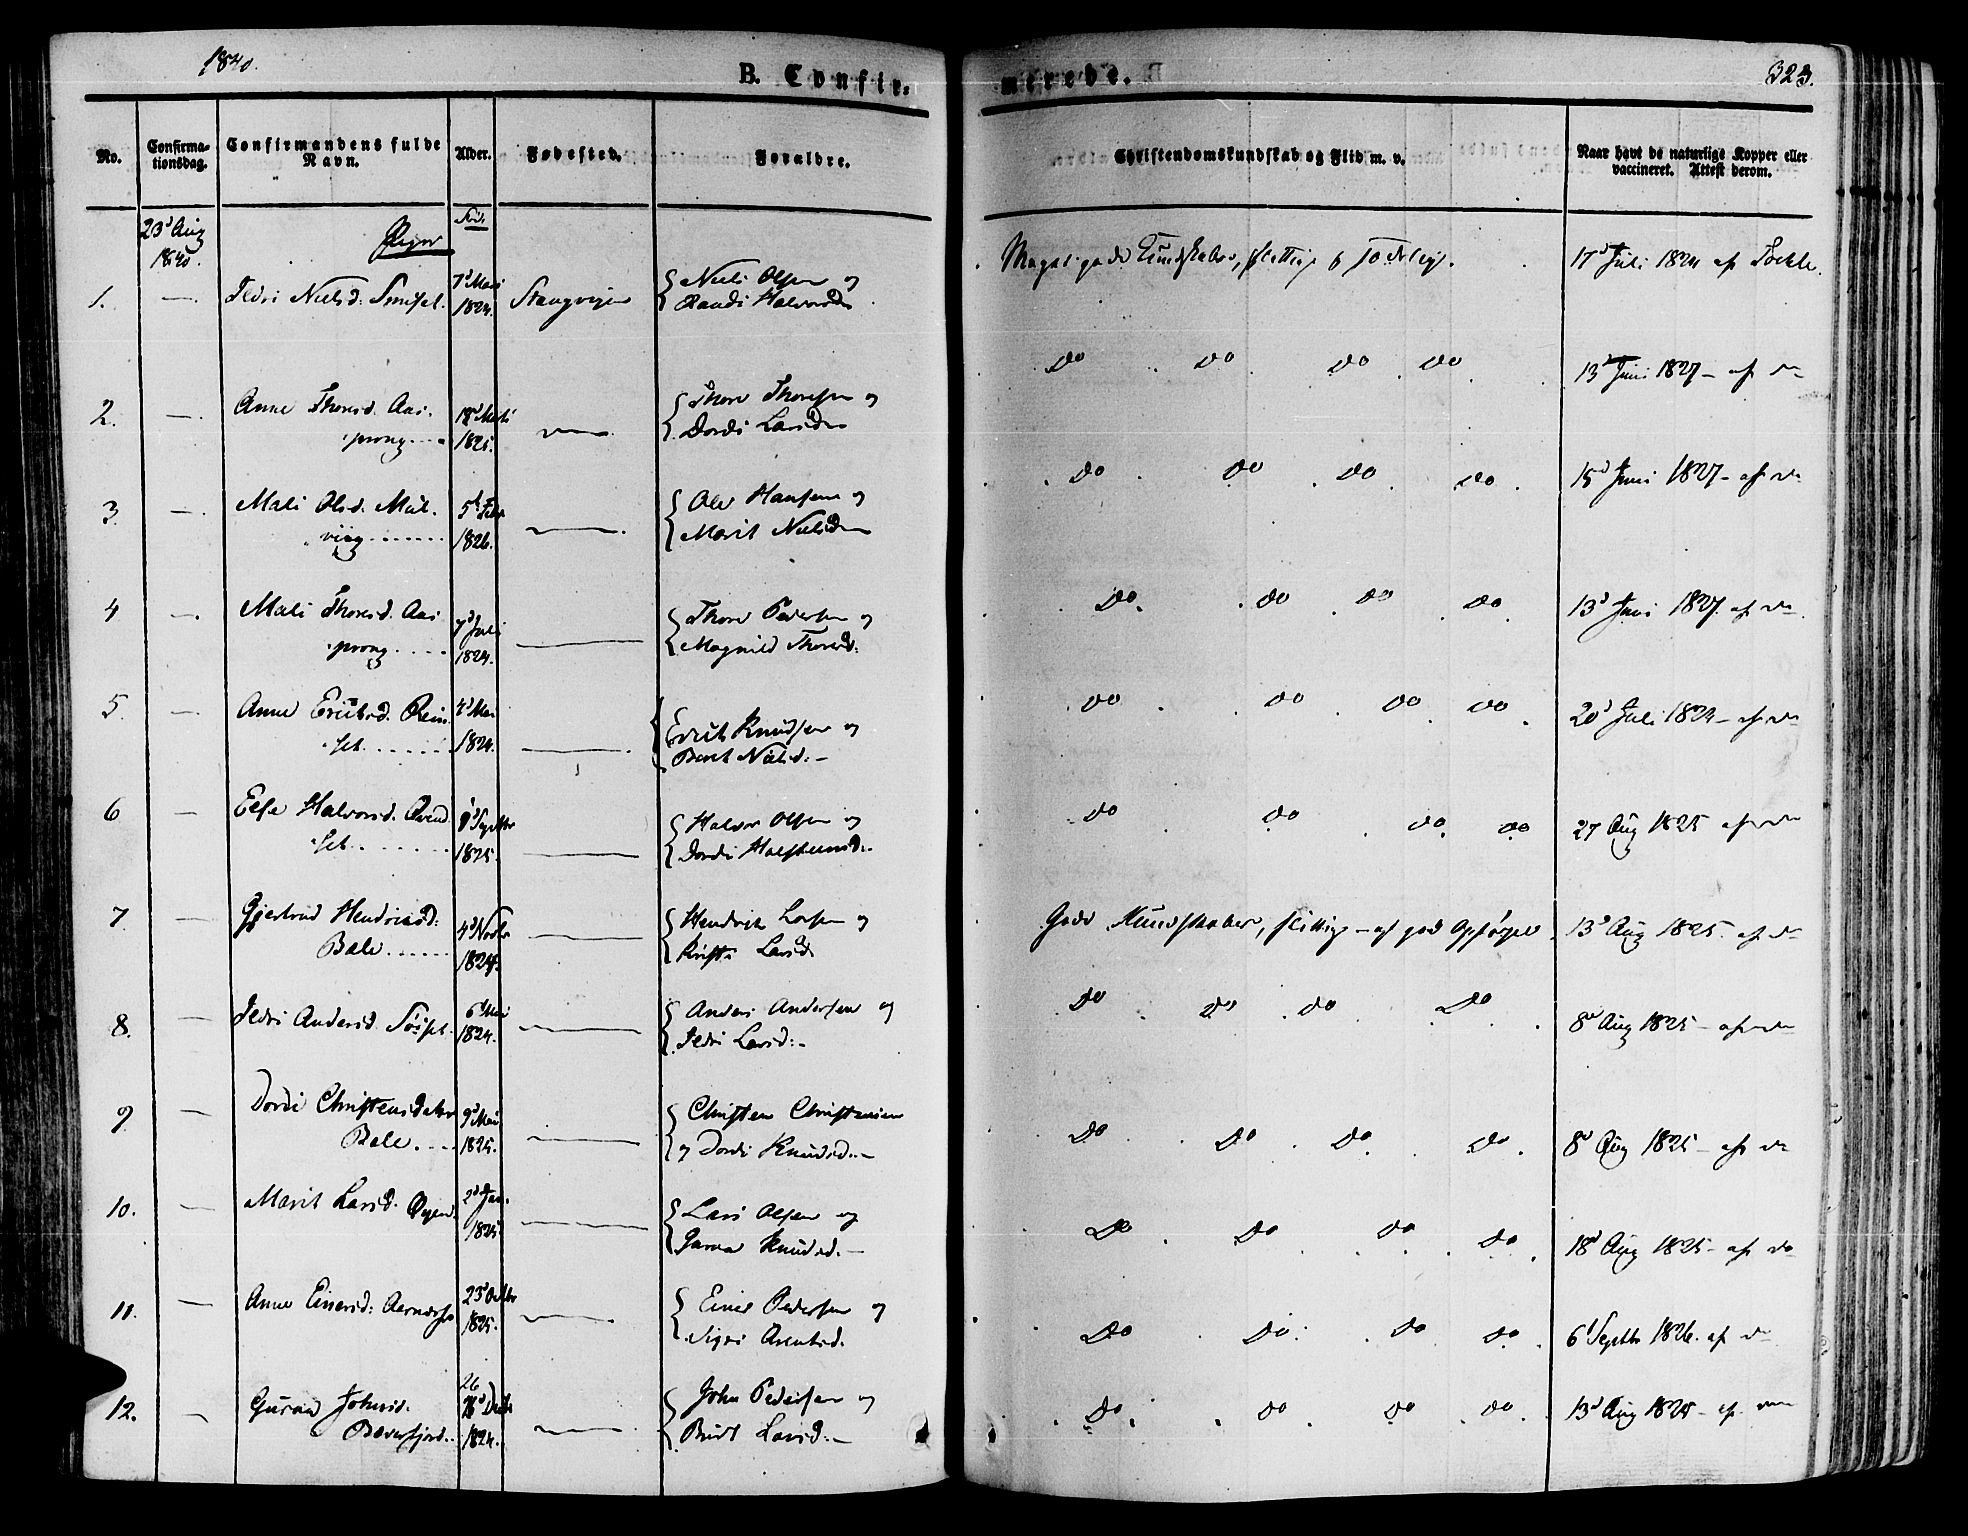 1840.
B. Confir-
merede.
323.
No.
Confirma-
tionsdag.
Confirmandens fulde
Navn.
Alder.
Fødested.
Forældre.
Christendomskundskab og Flid m. v.
Naar havt de naturlige Kopper eller
vaccineret. Attest derom.
23d Aug
1840.
Piger
1. — Ildri Nielsd: 7d Mai 1824. Stangvigen { Niels Olsen og
Randi Halvorsd
Meget gode Kundskaber, flittig &
17d Juli 1824 af
2. — Anne Thoresd. Aas-
prong 1825. { Thore Thoresen og
Dordi Larsd
Do Do Do Do
13d Juni 1827 — af do
3. — Mali Olsd. Mul-
viig 5d Febr 1826. — { Ole Hansen og
Marit Nielsd
Do Do Do Do
15d Juni 1827 — af do
4 — Mali Thoresd. Aas-
prong 7d Juli 1824. — { Thore Pedersen og
Magnild Thoresd:
Do. Do Do Do
13d Juni 1827. af do
5. — Anne Ericksd. Rein-
set 4d Mai 1824. — { Erick Knudsen og
Berit Nielsd: —
Do Do Do Do
20d Juli 1824 — af do
6 — Else Halvorsd.
set Septbr 1825. — { Halvor Olsen og
Dordi Halsteensd:
Do Do Do Do
27 Aug 1825 af do
7 — Gjertrud Hendricsd:
Bale 4d Novbr 1824. — { Hendrick Larsen og
Kirsti Larsd
Gode Kundskaber, flittig — af god Opførsel
13d Aug 1825. af do
8. — Ildri Andersd. 6d Mai 1824. — { Anders Andersen og
Ildri Larsd: —
Do Do Do Do
8d Aug 1825 — af do
9 — Dordi Christensdatter
Bale 9d Mai 1825. — { Christen Christensen
og Dordi Knudsd: —
Do Do Do. Do
8d Aug 1825 — af do
10. — Marit Larsd. Øyen 2d Jan. 1825 — { Lars Olsen og
Knudsd. —
Do Do Do Do
18d Aug 1825 — af do
11. — Anne Einersd: 23d Octbr 1825. — { Einer Pedersen og
Sigri Arentsd.
Do Do. Do Do
6d Septbr 1826. af do
12. — Guruna Johnsd.
Bæverfjord 26 Decbr 1824. — { John Pedersen og
Berit Larsd: —
Do. Do Do Do
13d Aug 1825 — af do